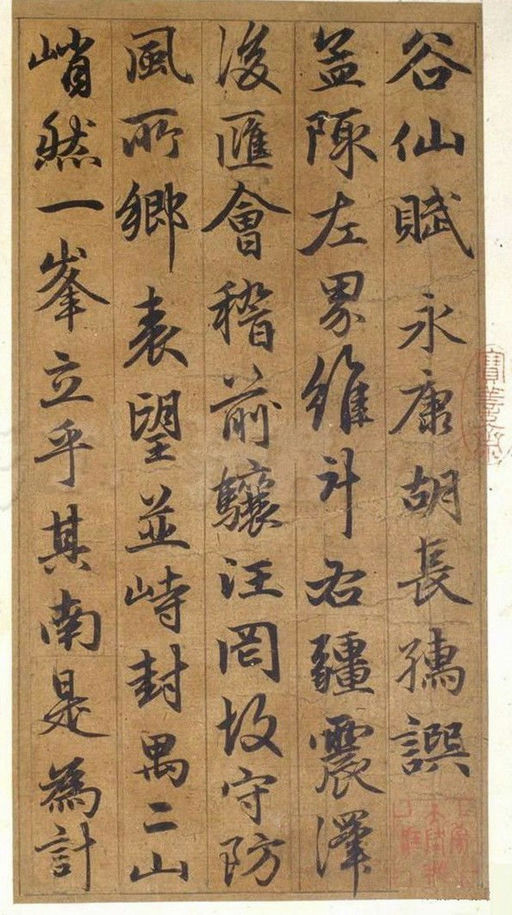 谷仙賦 永康胡長孺譔
孟陬左界維斗右疆震澤
後匯會稽前驤汪罔攸守防
風所鄉表望並峙封禺二山
峭然一峯立乎其南是為計